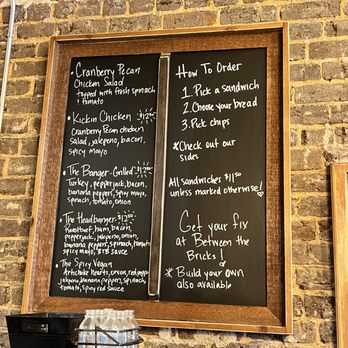 • Cranberry Pecan
Chicken Salad
topped with fresh spinach
+ tomato
• Kickin Chicken
Cranberry Pecan chicken
salad, jalapeno, bacon,
spicy mayo
• The Banger - Grilled
Turkey, pepperjack, bacon,
banana peppers, spicy mayo,
spinach, tomato, onion
• The Headbanger
Roastbeef, ham, bacon,
pepperjack, jalapeno, onion,
banana peppers, spinach, tomato
spicy mayo,
• The Spicy Vegan
Artichoke Hearts, onion, red pepper
jalapeno, banana peppers, spinach,
tomato, spicy red sauce
How To Order
1. Pick a sandwich
2. Choose your bread
3. Pick chips
*Check out our
sides
All sandwiches
unless marked otherwise!
Get your fix
at Between the
Bricks!
* Build your own
also available